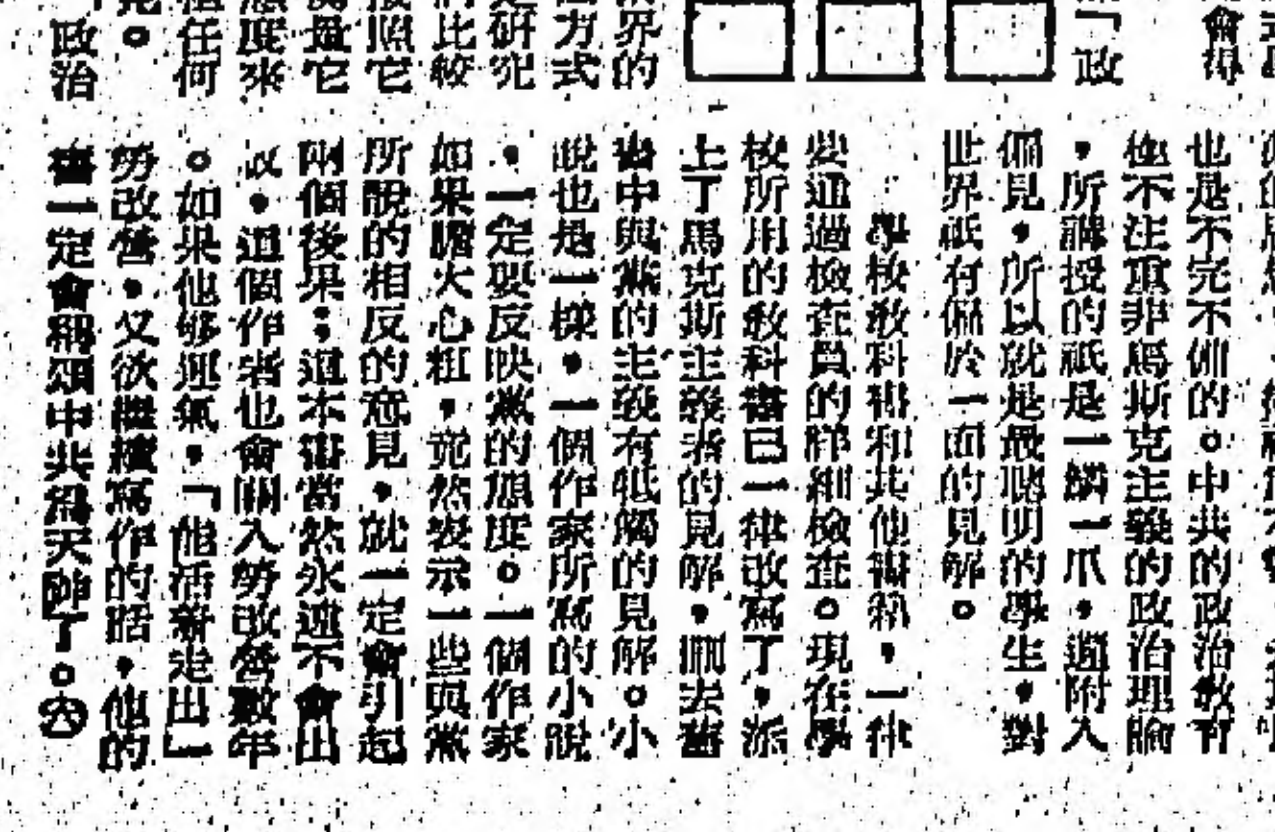 會得
「政
界的
方式
研究
比較
照它
它
態度來
任何
見。
政治
也是不完不備的。中共的政治教育
極不注重非馬斯克主義的政治理論
，所講授的祇是一鱗一爪，過附入
偏見，所以就是最聰明的學生，對
世界祇有偏於一面的見解。
學校教科書和其他書籍，一律
要通過檢查員的詳細檢查。現在學
校所用的教科書已一律改寫了，派
上了馬克斯主義者的見解，刪去舊
書中與黨的主義有牴觸的見解。小
說也是一樣，一個作家所寫的小說
，一定要反映黨的態度。一個作家
如果膽大心粗，竟然表示一些與黨
所說的相反的意見，就一定會引起
兩個後果：這本書當然永遠不會出
版，這個作者也會關入勞改營數年
。如果他够運氣，「他活著走出」
勞改營，又欲繼續寫作的話，他的
書一定會稱頌中共為天師了。㊅